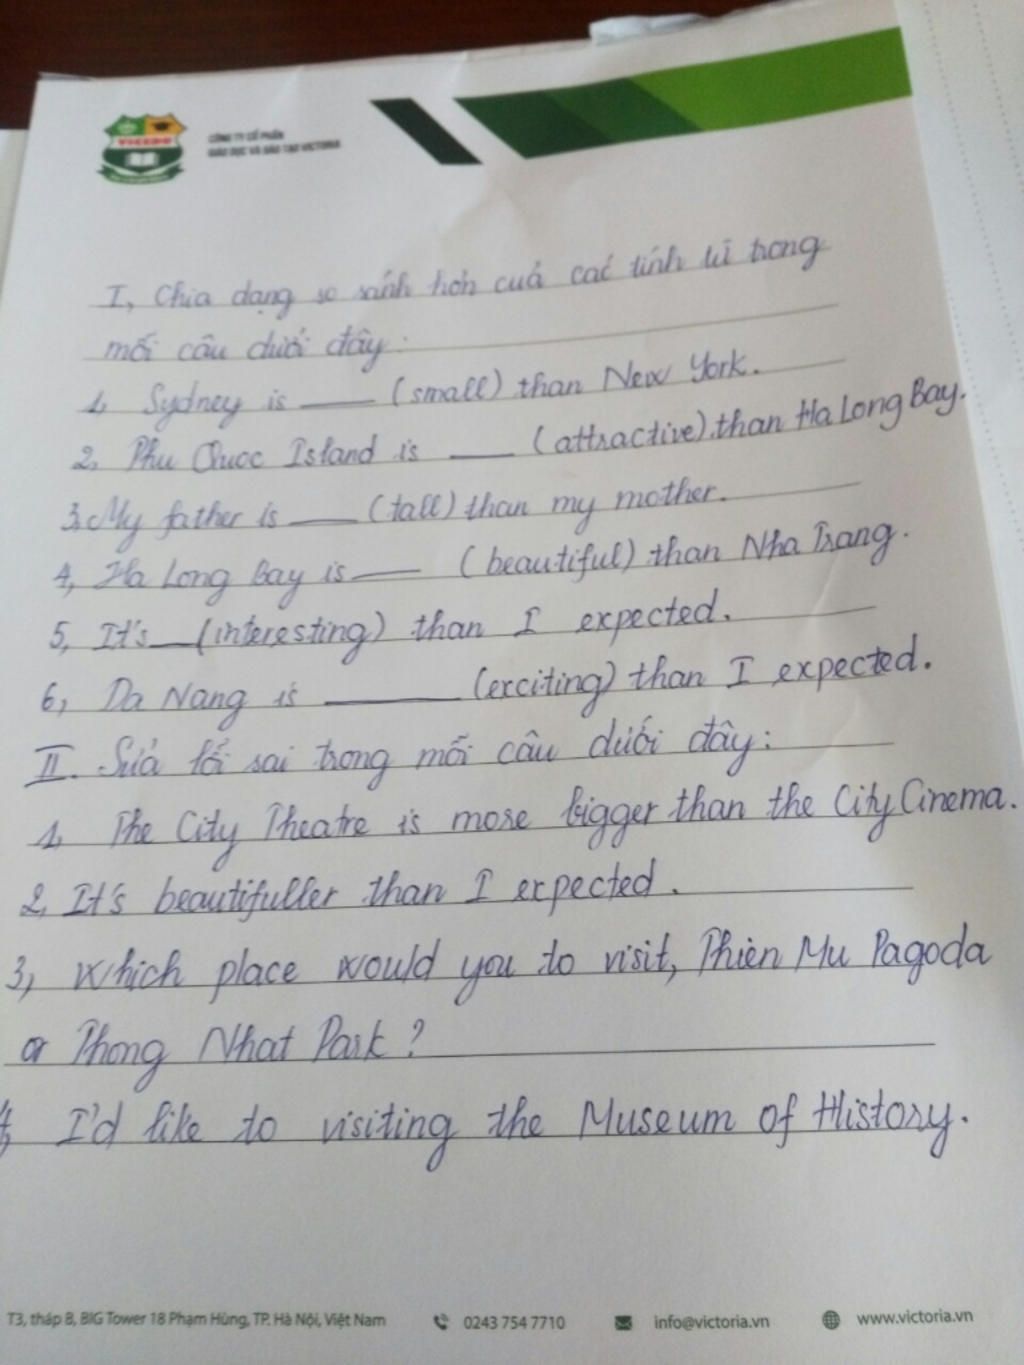 VICEDU
CÔNG TY CỔ PHẦN
GIÁO DỤC VÀ ĐÀO TẠO VICTORIA
I, Chia dạng so sánh hơn cuả các tính từ trong
mỗi câu dưới đây:
1, Sydney is ___ (small) than New York.
2, Phu Quoc Island is ___ (attractive) than Ha Long Bay.
3, My father is ___ (tall) than my mother.
4, Ha Long Bay is ___ (beautiful) than Nha Trang.
5, It's ___ (interesting) than I expected.
6, Da Nang is ______ (exciting) than I expected.
II. Sửa lỗi sai trong mỗi câu dưới đây:
1, The City Theatre is more bigger than the City Cinema.
2, It's beautifuller than I expected.
3, Which place would you to visit, Thien Mu Pagoda
or Thong Nhat Park?
4, I'd like to visiting the Museum of History.
T3, tháp B, BIG Tower 18 Phạm Hùng, TP. Hà Nội, Việt Nam 0243 754 7710 info@victoria.vn www.victoria.vn